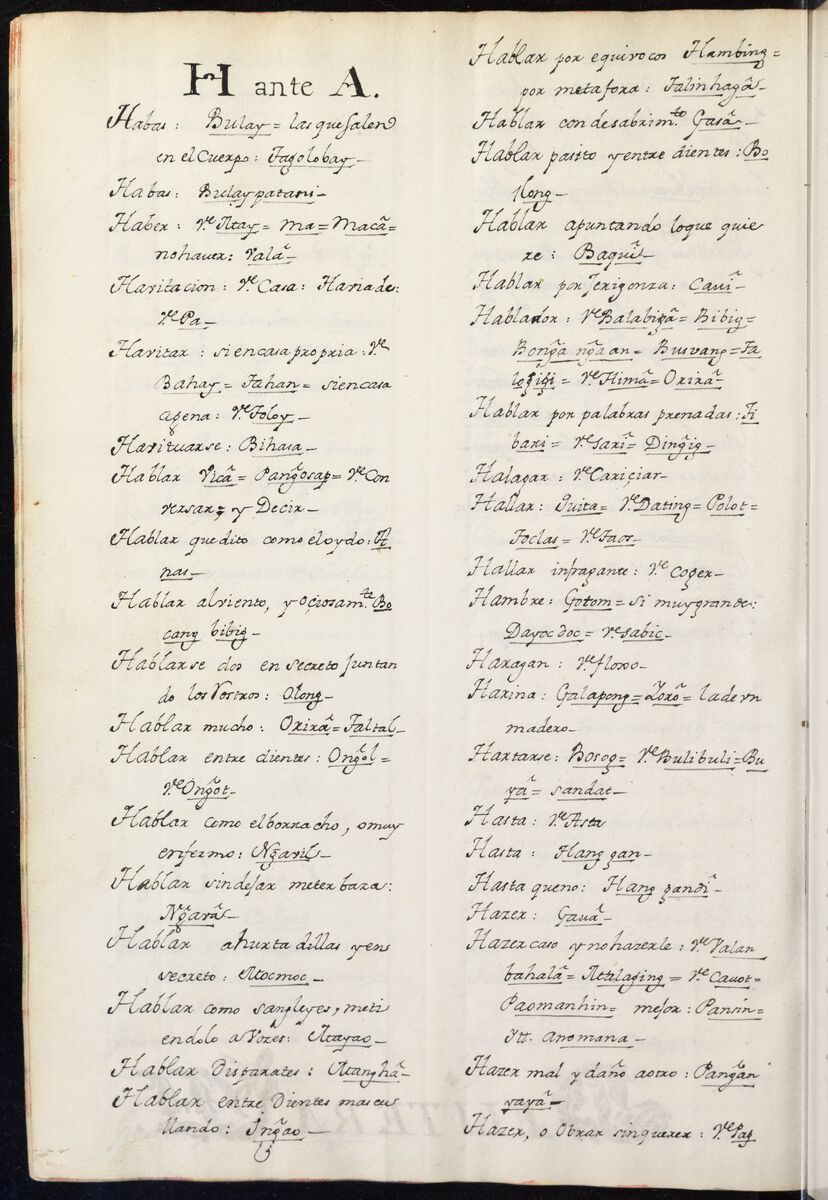 H ante A.
Habas: Bulay= las que salen
en el Cuerpo: Tagolobay_
Habas: Bulay patani_
Haber: Vᵉ Atay= ma= Macã=
no haver: Valã_
Haritacion: Vᵉ Casa: Hariades:
Vᵉ Pa_
Haritar: si en casa propria: Vᵉ
Bahay= Tahan= si en casa
agena: Vᵉ Toloy_
Harituarse: Bihasa_
Hablar Vicã= Pang̃osap= Vᵉ Con
versar= y Decir_
Hablar quedito como el oydo: A
nas_
Hablar al viento, y ociosamᵗᵉ Bo
cang bibig_
Hablarse dos en secreto Juntan
do los Rostros: Olong_
Hablar mucho: Orirã= Taltal_
Hablar entre dientes: Ong̃ol=
Vᵉ Ong̃ot_
Hablar como el borracho, o muy
enfermo: Ng̃aril_
Hablar sin dejar meter baza:
Ng̃arã_
Hablar a hurtadillas y en
secreto: Atocmoc_
Hablar como sangleyes, meti
endolo a Vozes: Atayao_
Hablar Disparates: Atanghã_
Hablar entre Dientes mascu
llando: Ing̃ao_
Hablar por equivocos Hambing=
por metafora: Talinhagã_
Hablar con desabrimᵗᵒ Gasã_
Hablar pasito y entre dientes: Bo
long_
Hablar apuntando lo que quie
re: Baquĩ_
Hablar por Jerigonza: Cavĩ_
Hablador: Vᵉ Balabiçã= Bibig=
Bong̃a ng̃aan= Busvang= Ta
Vᵉ Himã= Orirã_
Hablar por palabras preñadas: Ti
bari= Vᵉ Sarĩ= Ding̃ig_
Halagar: Vᵉ Cariçiar_
Hallar: Quita= Vᵉ Dating= Polot=
Toclas= Vᵉ Taos_
Hallar infragante: Vᵉ Coger_
Hambre: Gotom= si muy grande:
Dayoc doc= Vᵉ Sabic_
Haragan: Vᵉ floxo_
Harina: Galapong= Zorõ= la de vn
madero_
Hartarse: Bosog= Vᵉ Bulibuli= Bu
yã= sandat_
Hasta: Vᵉ Asta
Hasta: Hang gan_
Hasta que no: Hang gandĩ_
Hazer: Gavã_
Hazer caso y no hazerle: Vᵉ Valan
bahalã= Atalaging= Vᵉ Cavot=
Paomanhin= mejor: Pansin=
Ytt. anomana_
Hazer mal y daño a otro: Pang̃an
yayã_
Hazer, o Obrar sin querer: Vᵉ Pag